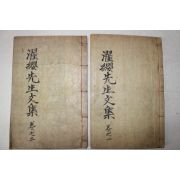 濯纓先生文集 卷之一
濯纓先生文集